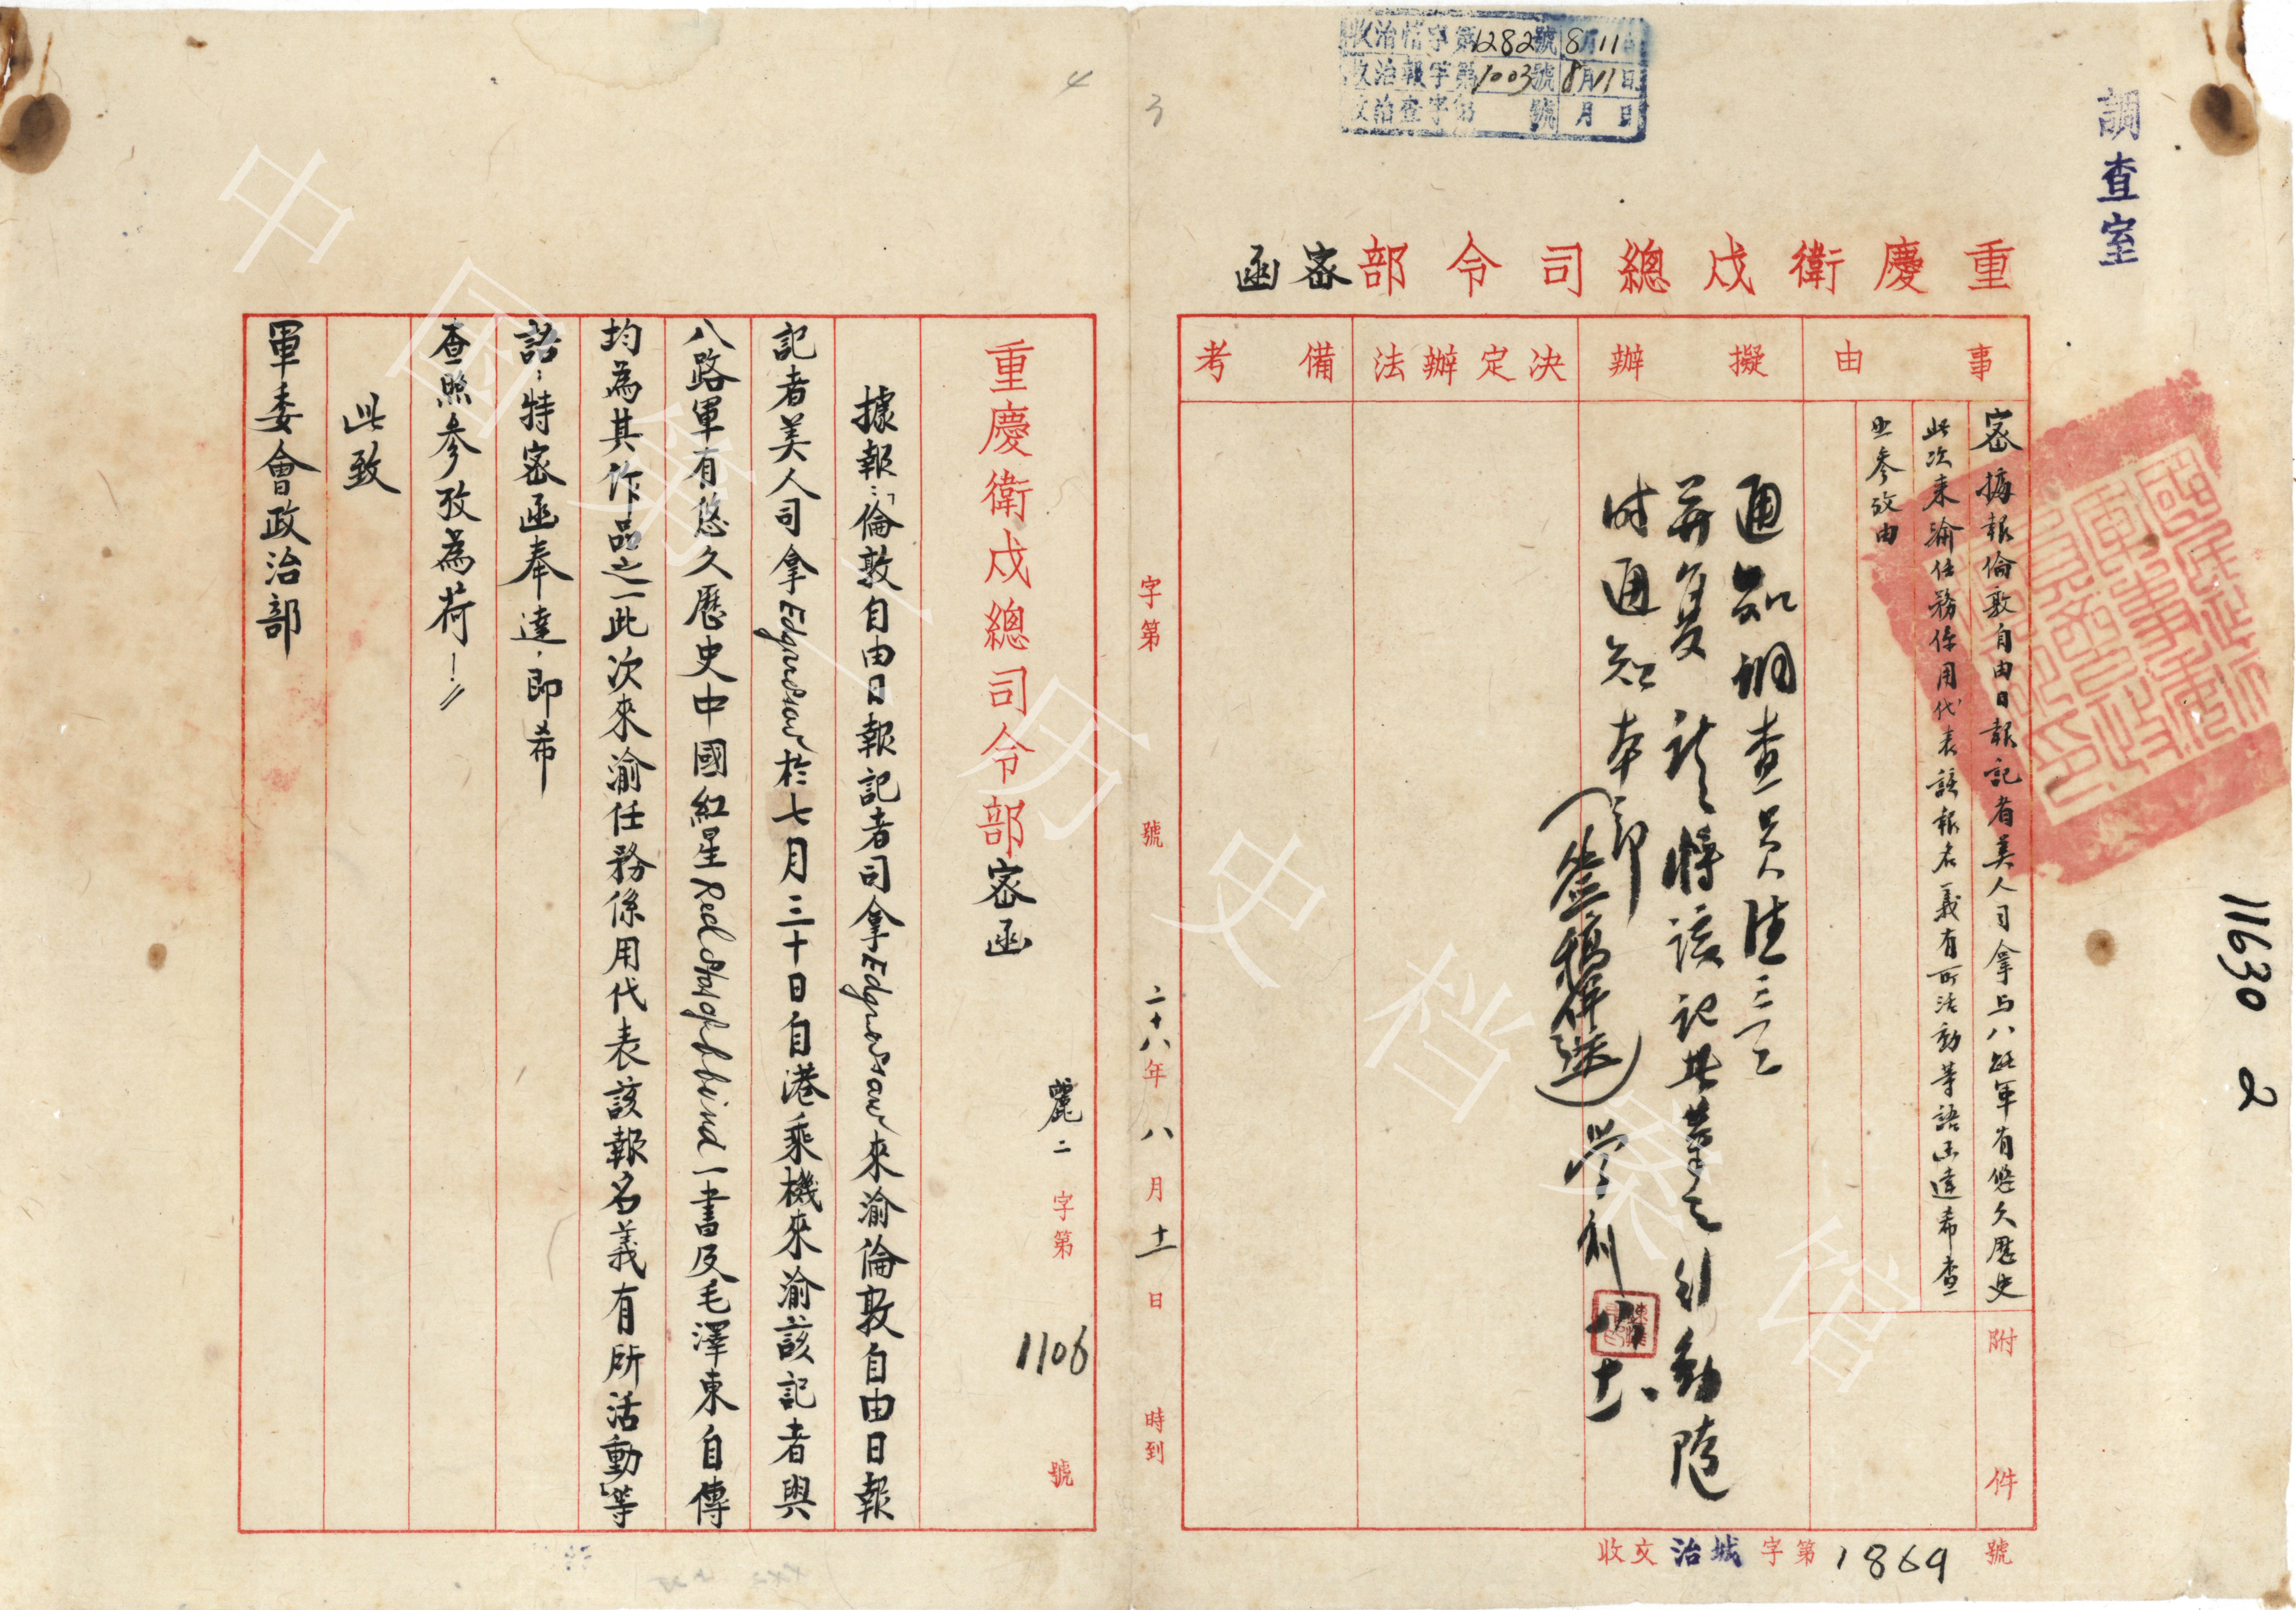 調查室
收治檔字第1282號8月11日
收治報字第1003號8月11日
收治查字第 號 月 日
重慶衛戍總司令部密函
事由
密據報倫敦自由日報記者美人司拿与八路軍有悠久歷史
此次來渝任務係用代表該報名義有所活動等語函達希查
照參攷由
附件
擬辦
通知調查員
并复 將該記者之行動隨
时通知本部
決定辦法
備考
收文治城字第1869號
11630 2
字第 號
二十八年八月十一日 時到
3
4
重慶衛戍總司令部密函
麗二字第1106號
據報：「倫敦自由日報記者司拿Edgar Snow來渝倫敦自由日報
記者美人司拿Edgar Snow於七月三十日自港乘機來渝該記者與
八路軍有悠久歷史中國紅星Red Star of China一書及毛澤東自傳
均為其作品之一此次來渝任務係用代表該報名義有所活動」等
語；特密函奉達，即希
查照參攷為荷！
此致
軍委會政治部
中国第二历史档案馆